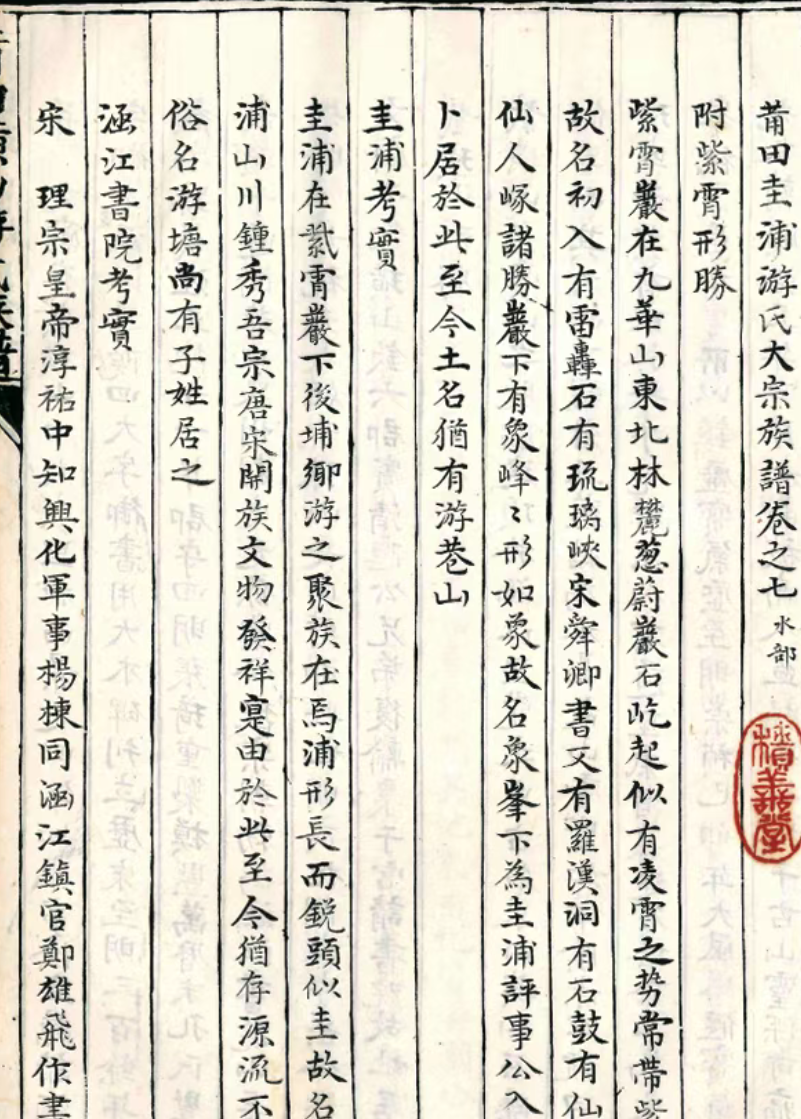 莆田圭浦游氏大宗族譜卷之七 水部
積善堂
附紫霄形勝
紫霄巖在九華山東北林麓蔥蔚巖石屹起似有凌霄之势常帶紫
故名初入有雷轟石有琉璃峽宋舜卿書又有羅漢洞有石鼓有仙
仙人㟎諸勝巖下有象峰〻形如象故名象峯下為圭浦評事公入
卜居於此至今土名猶有游巷山
圭浦考實
圭浦在紫霄巖下後埔鄉游之聚族在焉浦形長而銳頭似圭故名
浦山川鍾秀吾宗唐宋開族文物發祥寔由於此至今猶存源流不
俗名游塘尚有子姓居之
涵江書院考實
宋 理宗皇帝淳祐中知興化軍事楊棟同涵江鎮官鄭雄飛作書